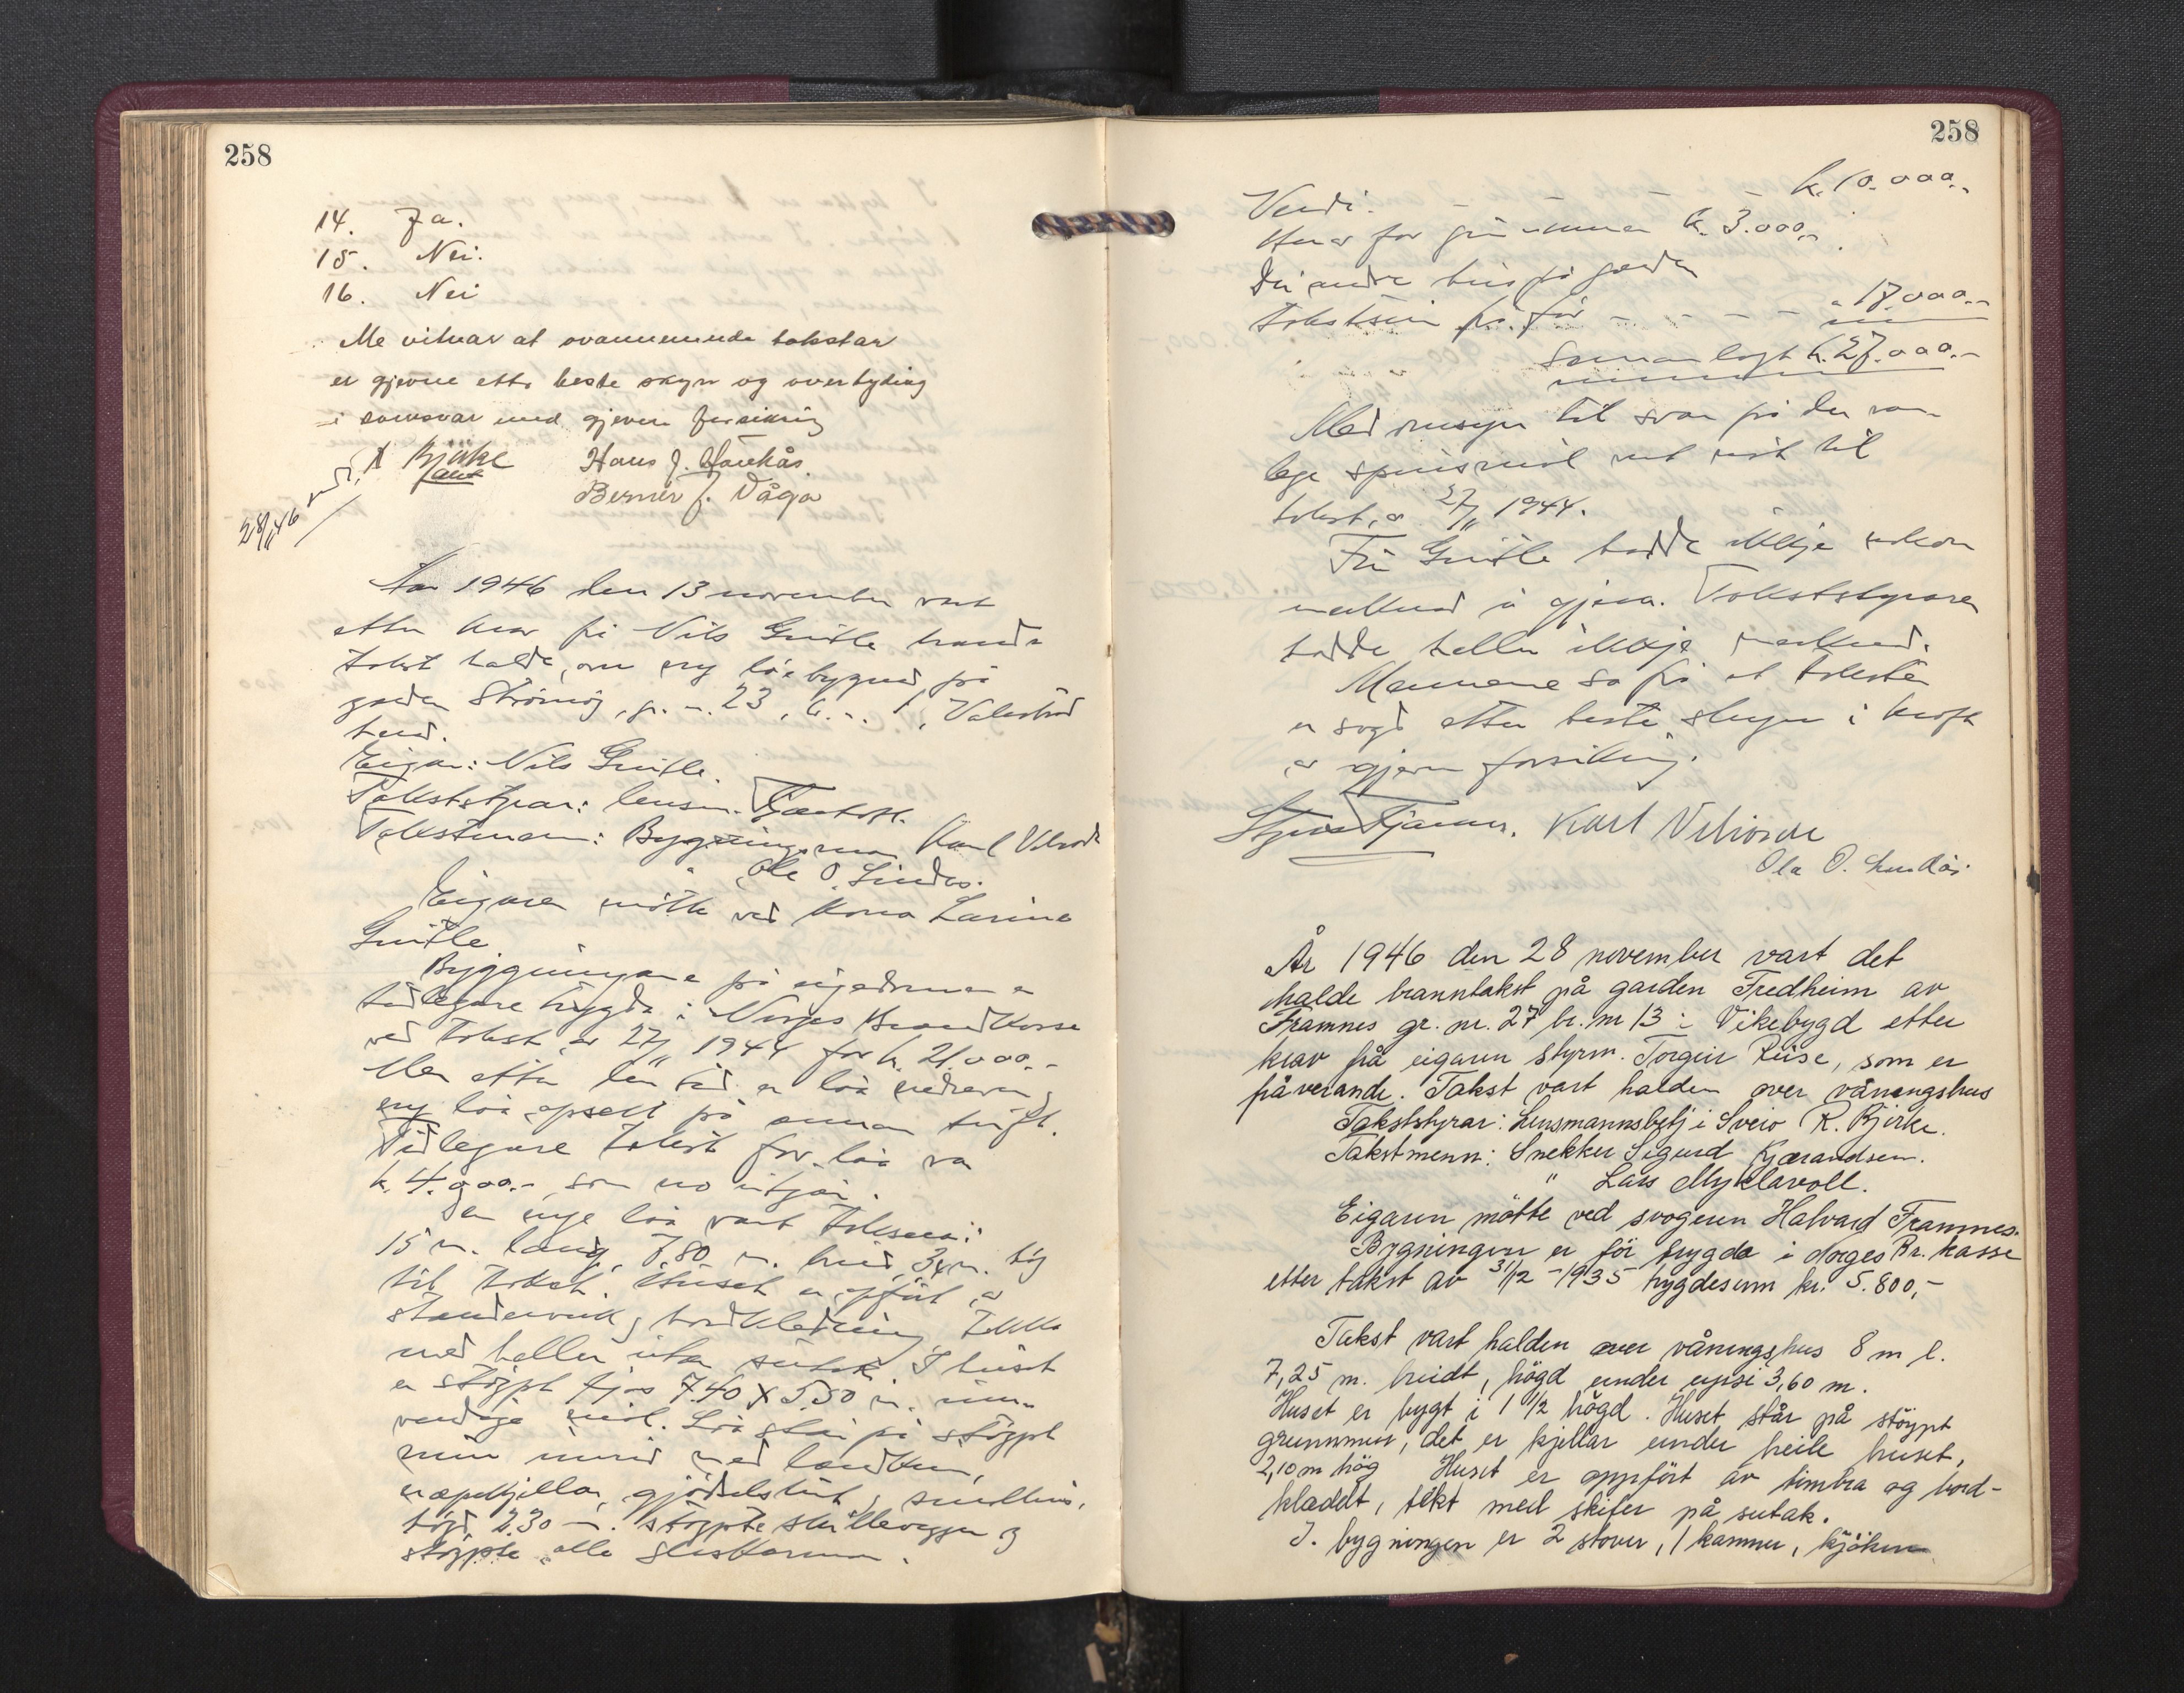 258
14. Ja.
15. Nei.
16. Nei
Me vitnar at ovannemnde takstar
er gjevne etter beste skyn og overtyding
i samsvar med gjeven forsikring
R Bjirke
Hans J.
Bernér J. Våga
28/11 46
Aar 1946 den 13 november vart
etter krav frå Nils Gritle brand-
takst halde, over ny löebygnad på
garden Strömöy, gr. n. 23, b. n. 1, Valestrand
herad.
Eigar: Nils Gritle.
Takststyrar: lensm. Tjantoft.
Takstmenn: Bygningsmann Karl
" Ole O. Lindås.
Eigaren møtte ved kona Larina
Gritle
Byggningane på eigedomen er
tidlegare trygda i Norges Brandkasse
ved takst av 27/11 1944 for kr. 21.000.-
Men etter den tid er löa nedreven og
ny löa opsett på annan tuft.
Tidlegare takst for löa var
kr. 4.000.- som no utgår.
Den nye löa vart taksera:
15 m. lang, 7.80 m. breid, 3,4 m. høg
til raket. Huset er opført av
stenderverk, bordkledning, tekke
med heller utan sutak. I huset
er støypt fjos 7.40 X 5.50 m. inn-
vendige mål. Löa står på støypt
mur
næpekjellar, gjødselshus, smalhus,
høgd 2.30 m. støypte skilleveggar og
støypte alle
258
Verdi. — — — k. 10.000.-
Herav for grunnmur k. 3.000.-
Dei andre hus på garden
takstsum frå før - - - - " 17.000.-
Samanlagt k. 27.000.-
Med omsyn til svar på dei van-
lege spursmål vert vist til
takst av 27/11 1944.
Fru Gritle hadde ikkje nokon
merknad å gjera. Takststyraren
hadde heller ikkje merknad.
Mennene sa frå at taksten
er sagt etter beste skyn i kraft
av gjeven forsikring.
Karl
Ola O. Lindås
År 1946 den 28 november vart det
halde branntakst på garden Fredheim av
Framnes gr. nr. 27 br. nr 13 i Vikebygd etter
krav frå eigaren styrm. Torgeir Riise, som er
fråverande. Takst vart halden over våningshus
Takststyrar: Lensmannsbetj i Sveio R. Bjirke.
Takstmenn: Snekker Sigurd Kjærandsen.
" Lars Myklavoll.
Eigaren møtte ved svogeren Halvard Framnes.
Bygningen er før trygda i Norges Br. kasse
etter takst av 31/12 - 1935 trygdesum kr. 5.800,-
Takst vart halden over våningshus 8 m l.
7,25 m. breidt, högd under upsi 3,60 m.
Huset er bygt i 1 1/2 högd. Huset står på stöypt
grunnmur, det er kjellar under heile huset,
2,10 m hög Huset er oppfört av timbra og bord-
kladdt, tekt med skifer på sutak.
I. bygningen er 2 stover, 1 kammer, kjöken